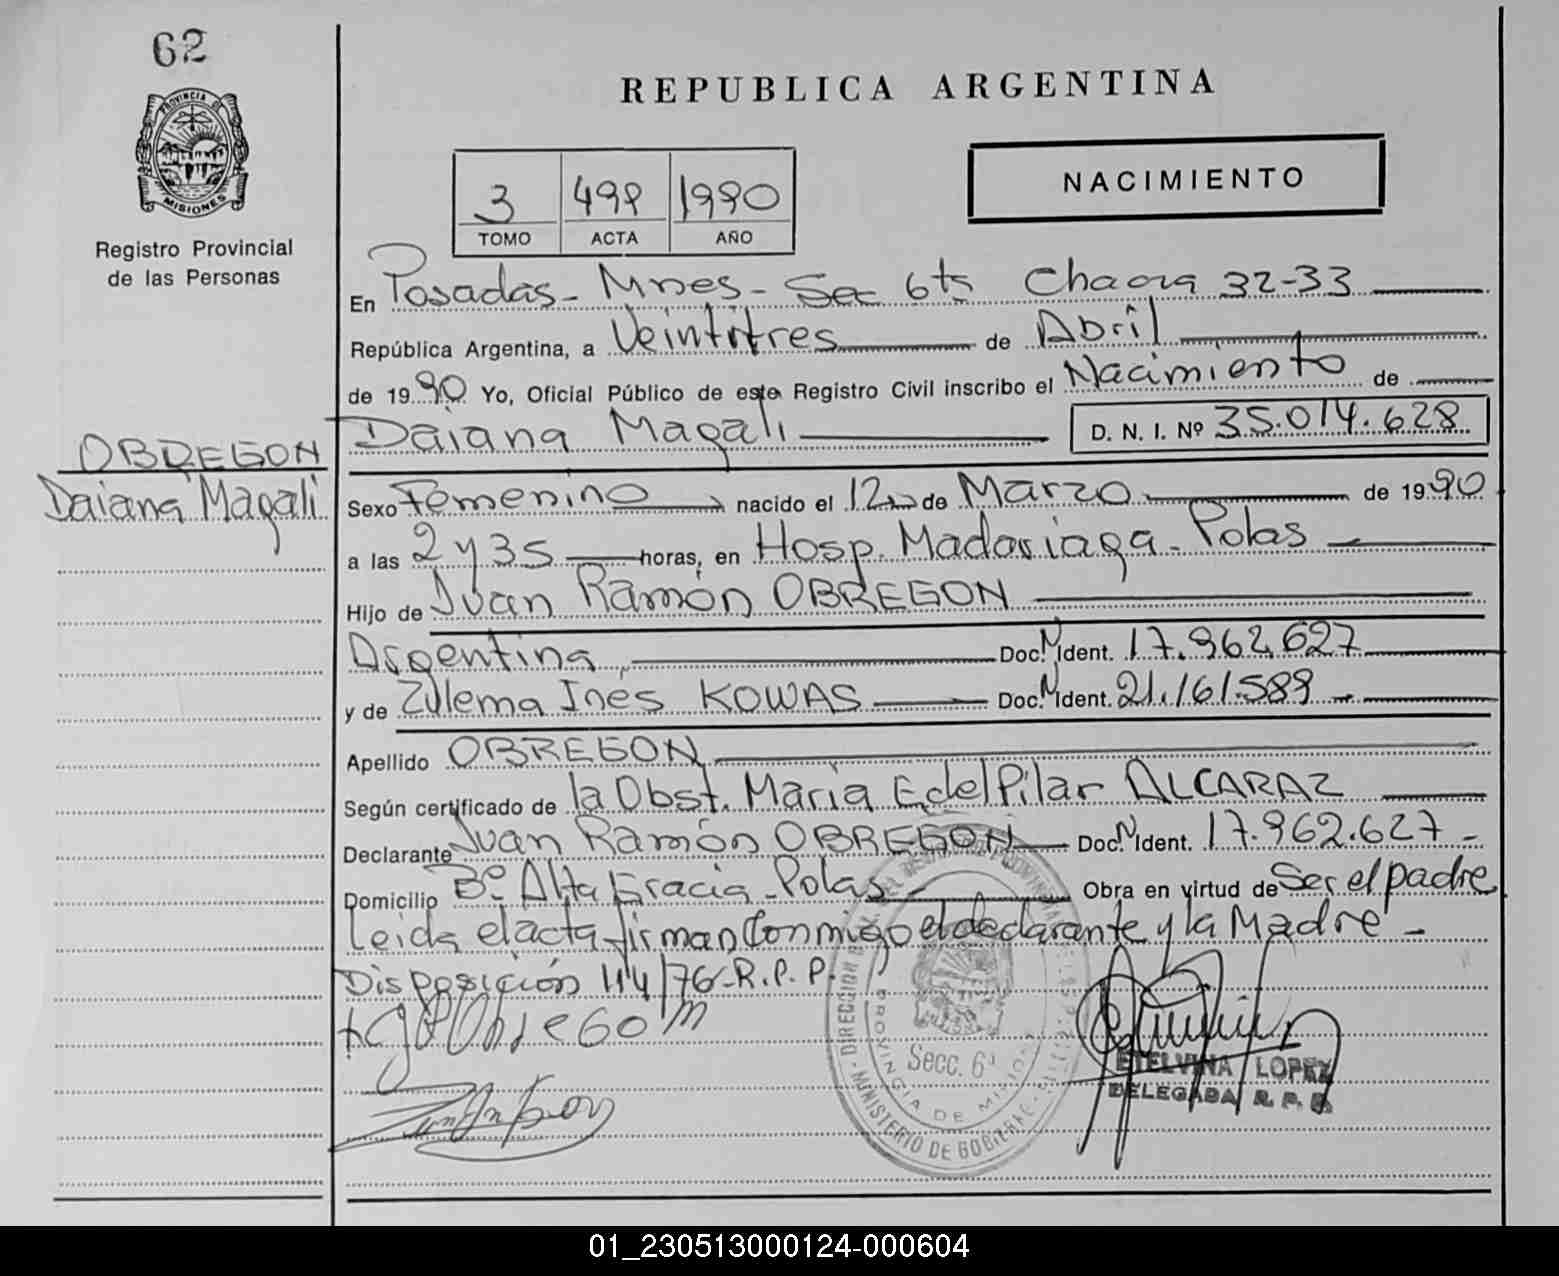 62
PROVINCIA DE
MISIONES
Registro Provincial
de las Personas
OBREGON
Daiana Magali
REPUBLICA ARGENTINA
NACIMIENTO
3 499 1990
TOMO ACTA AÑO
En Posadas - Mnes - Sec 6ta Chacra 32-33
República Argentina, a Veintitres de Abril
de 1990 Yo, Oficial Público de este Registro Civil inscribo el Nacimiento de
Daiana Magali D. N. I. Nº 35.014.628
Sexo Femenino nacido el 12 de Marzo de 1990
a las 2 y 35 horas, en Hosp. Madariaga - Pdas
Hijo de Juan Ramón OBREGON
Argentina Doc. N Ident. 17.962.627
y de Zulema Inés KOWAS Doc. N Ident. 21.161.589
Apellido OBREGON
Según certificado de la Obst. Maria E. del Pilar ALCARAZ
Declarante Juan Ramón OBREGON Doc. N Ident. 17.962.627
Domicilio Bº Alta Gracia - Pdas Obra en virtud de Ser el padre
Leida el acta firman conmigo el declarante y la Madre -
Disposición 114/76 - R.P.P.
Secc. 6ª
PROVINCIA DE MISIONES
MINISTERIO DE GOBIERNO
ETELVINA LOPEZ
DELEGADA R. P. P.
01_230513000124-000604